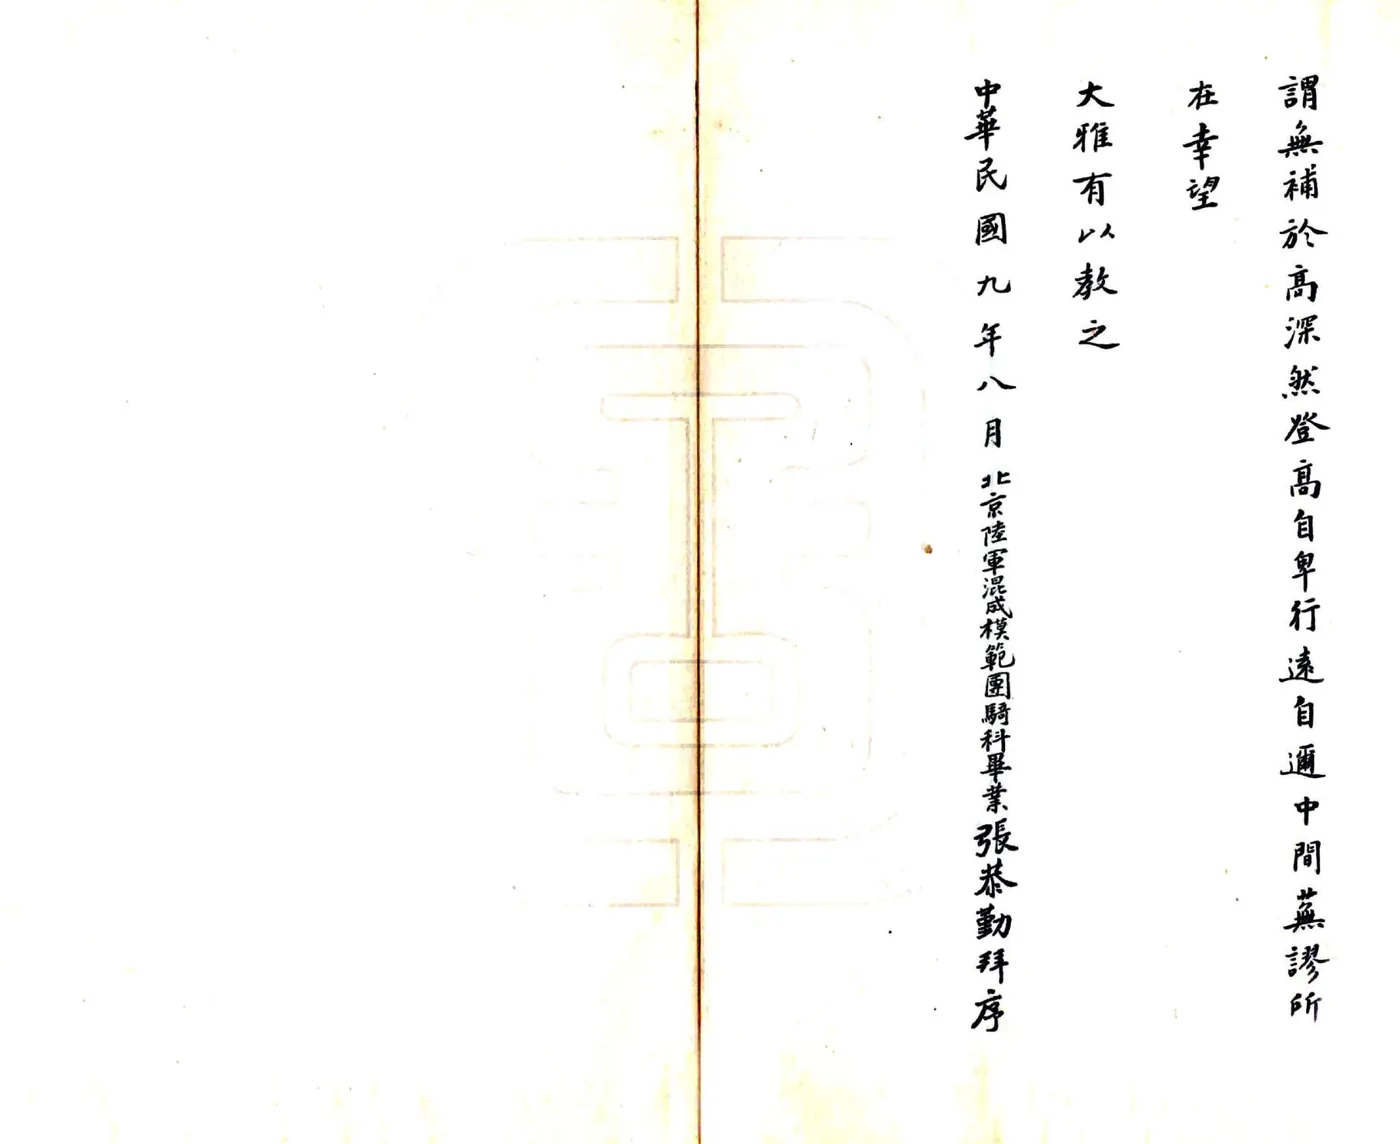 謂無補於高深然登高自卑行遠自邇中間蕪謬所
在幸望
大雅有以教之
中華民國九年八月北京陸軍混成模範團騎科畢業張恭勤拜序